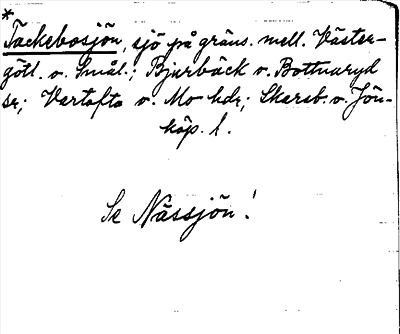 *
Tackebosjön, sjö på gräns. mell. Väster-
götl. o. Smål.; Bjurbäck o. Bottnaryd
sr; Vartofta o. Mo hdr; Skarab. o. Jön-
köp. l.
Se Nässjön!